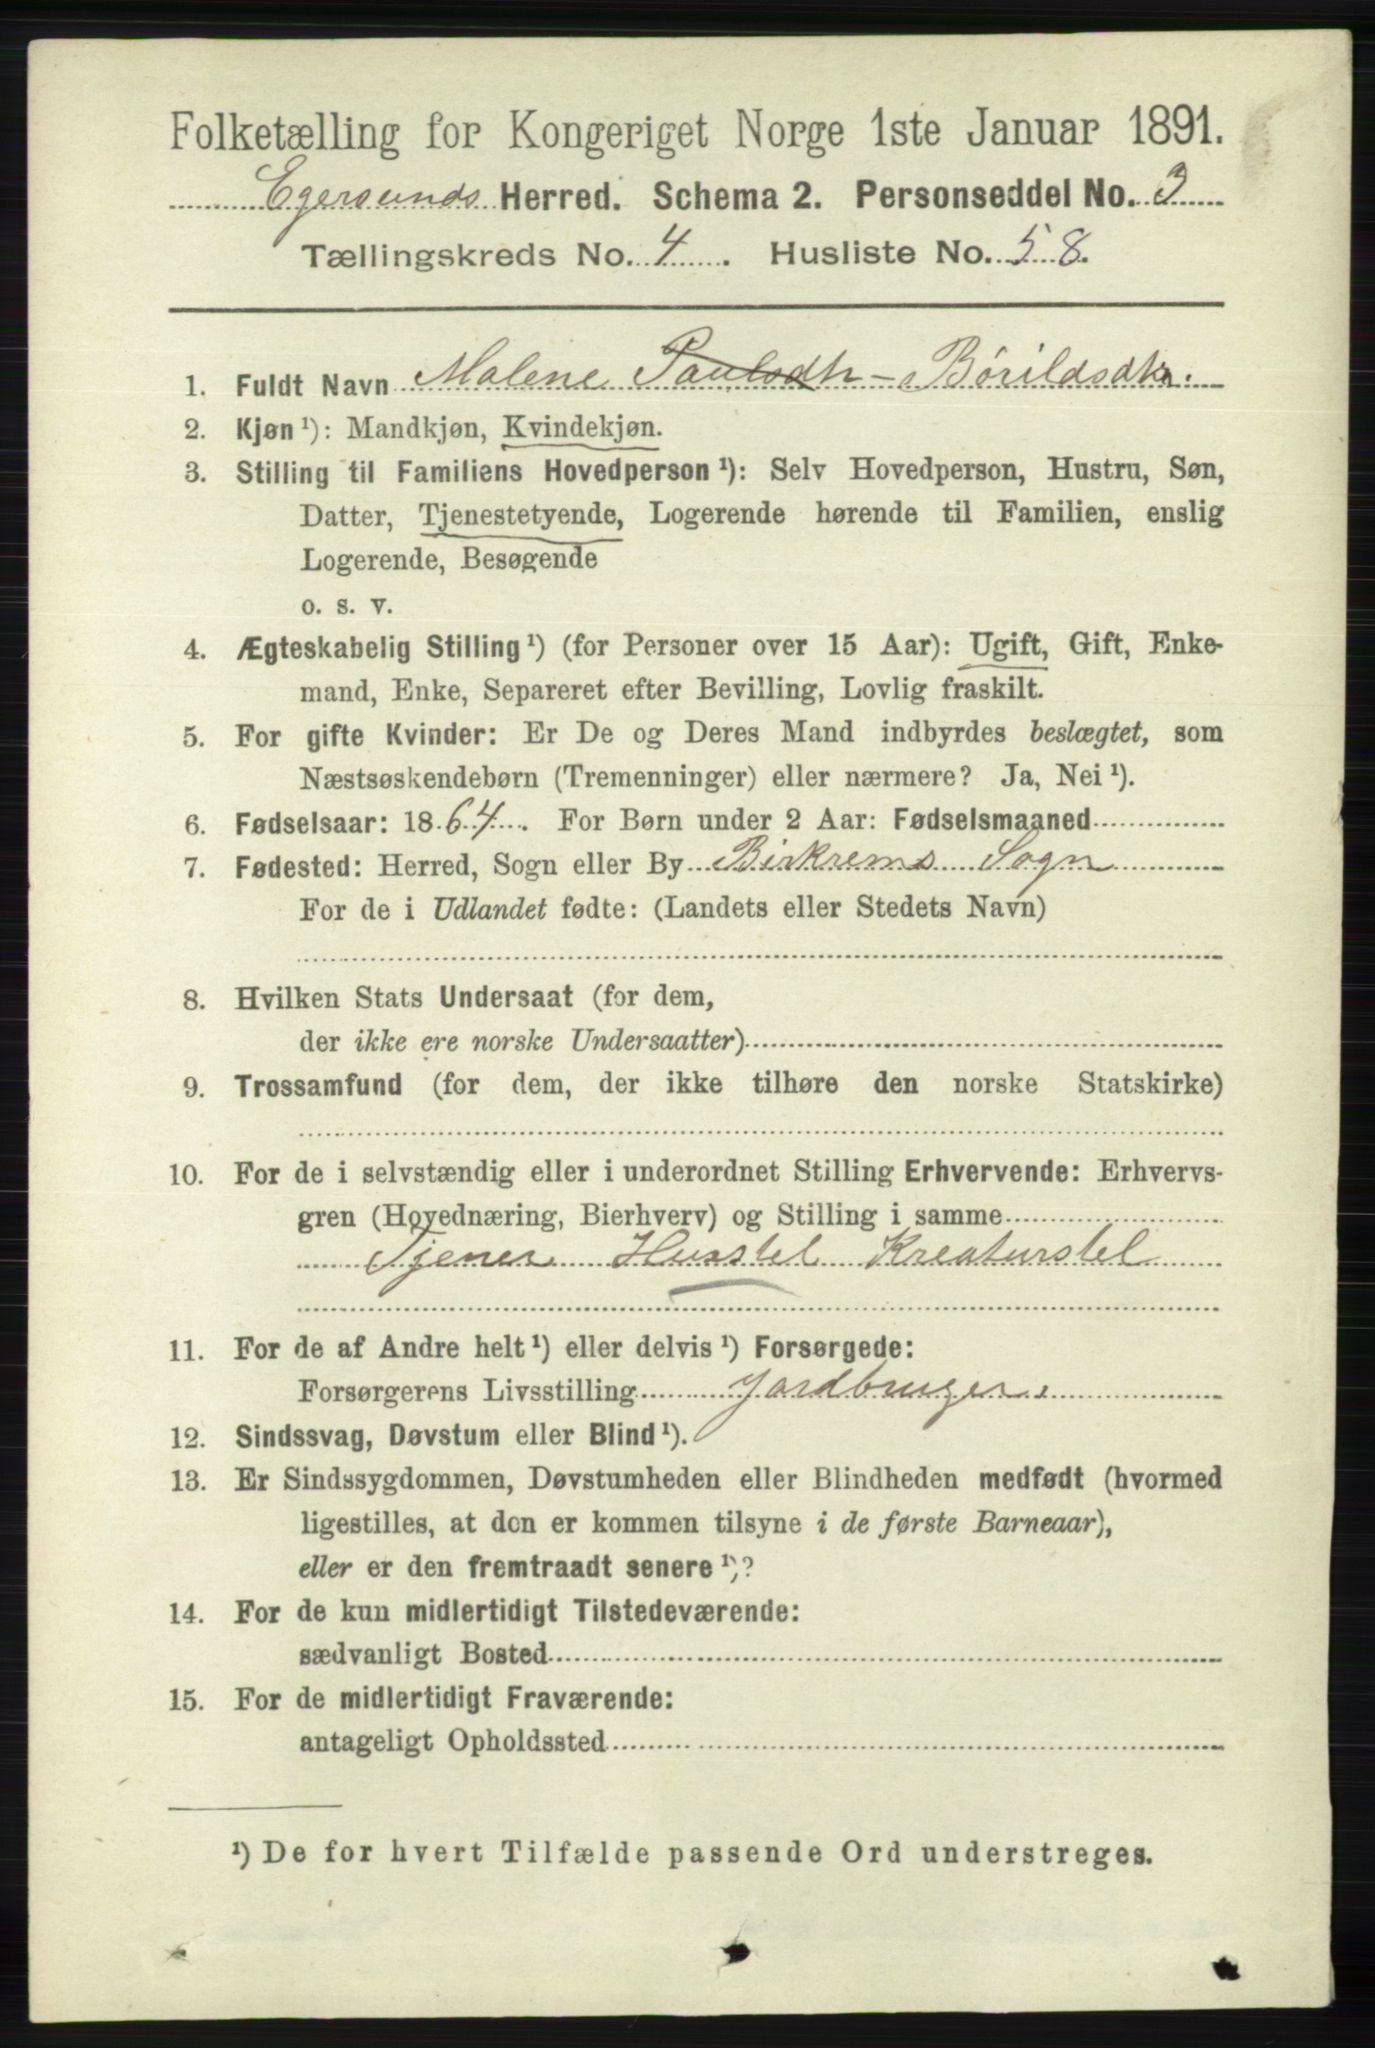 Folketælling for Kongeriget Norge 1ste Januar 1891.
Egersunds Herred. Schema 2. Personseddel No. 3
Tællingskreds No. 4. Husliste No. 58.
1. Fuldt Navn Malene Paulsdtr - Børildsdtr.
2. Kjøn ¹): Mandkjøn, Kvindekjøn.
3. Stilling til Familiens Hovedperson ¹): Selv Hovedperson, Hustru, Søn,
Datter, Tjenestetyende, Logerende hørende til Familien, enslig
Logerende, Besøgende
o. s. v.
4. Ægteskabelig Stilling ¹) (for Personer over 15 Aar): Ugift, Gift, Enke-
mand, Enke, Separeret efter Bevilling, Lovlig fraskilt.
5. For gifte Kvinder: Er De og Deres Mand indbyrdes beslægtet, som
Næstsøskendebørn (Tremenninger) eller nærmere? Ja, Nei ¹).
6. Fødselsaar: 1864. For Børn under 2 Aar: Fødselsmaaned
7. Fødested: Herred, Sogn eller By Birkrems Sogn
For de i Udlandet fødte: (Landets eller Stedets Navn)
8. Hvilken Stats Undersaat (for dem,
der ikke ere norske Undersaatter)
9. Trossamfund (for dem, der ikke tilhøre den norske Statskirke)
10. For de i selvstændig eller i underordnet Stilling Erhvervende: Erhvervs-
gren (Hovednæring, Bierhverv) og Stilling i samme
Tjener Husstel Kreaturstel
11. For de af Andre helt ¹) eller delvis ¹) Forsørgede:
Forsørgerens Livsstilling Jordbruger.
12. Sindssvag, Døvstum eller Blind ¹).
13. Er Sindssygdommen, Døvstumheden eller Blindheden medfødt (hvormed
ligestilles, at den er kommen tilsyne i de første Barneaar),
eller er den fremtraadt senere ¹)?
14. For de kun midlertidigt Tilstedeværende:
sædvanligt Bosted
15. For de midlertidigt Fraværende:
antageligt Opholdssted
¹) De for hvert Tilfælde passende Ord understreges.